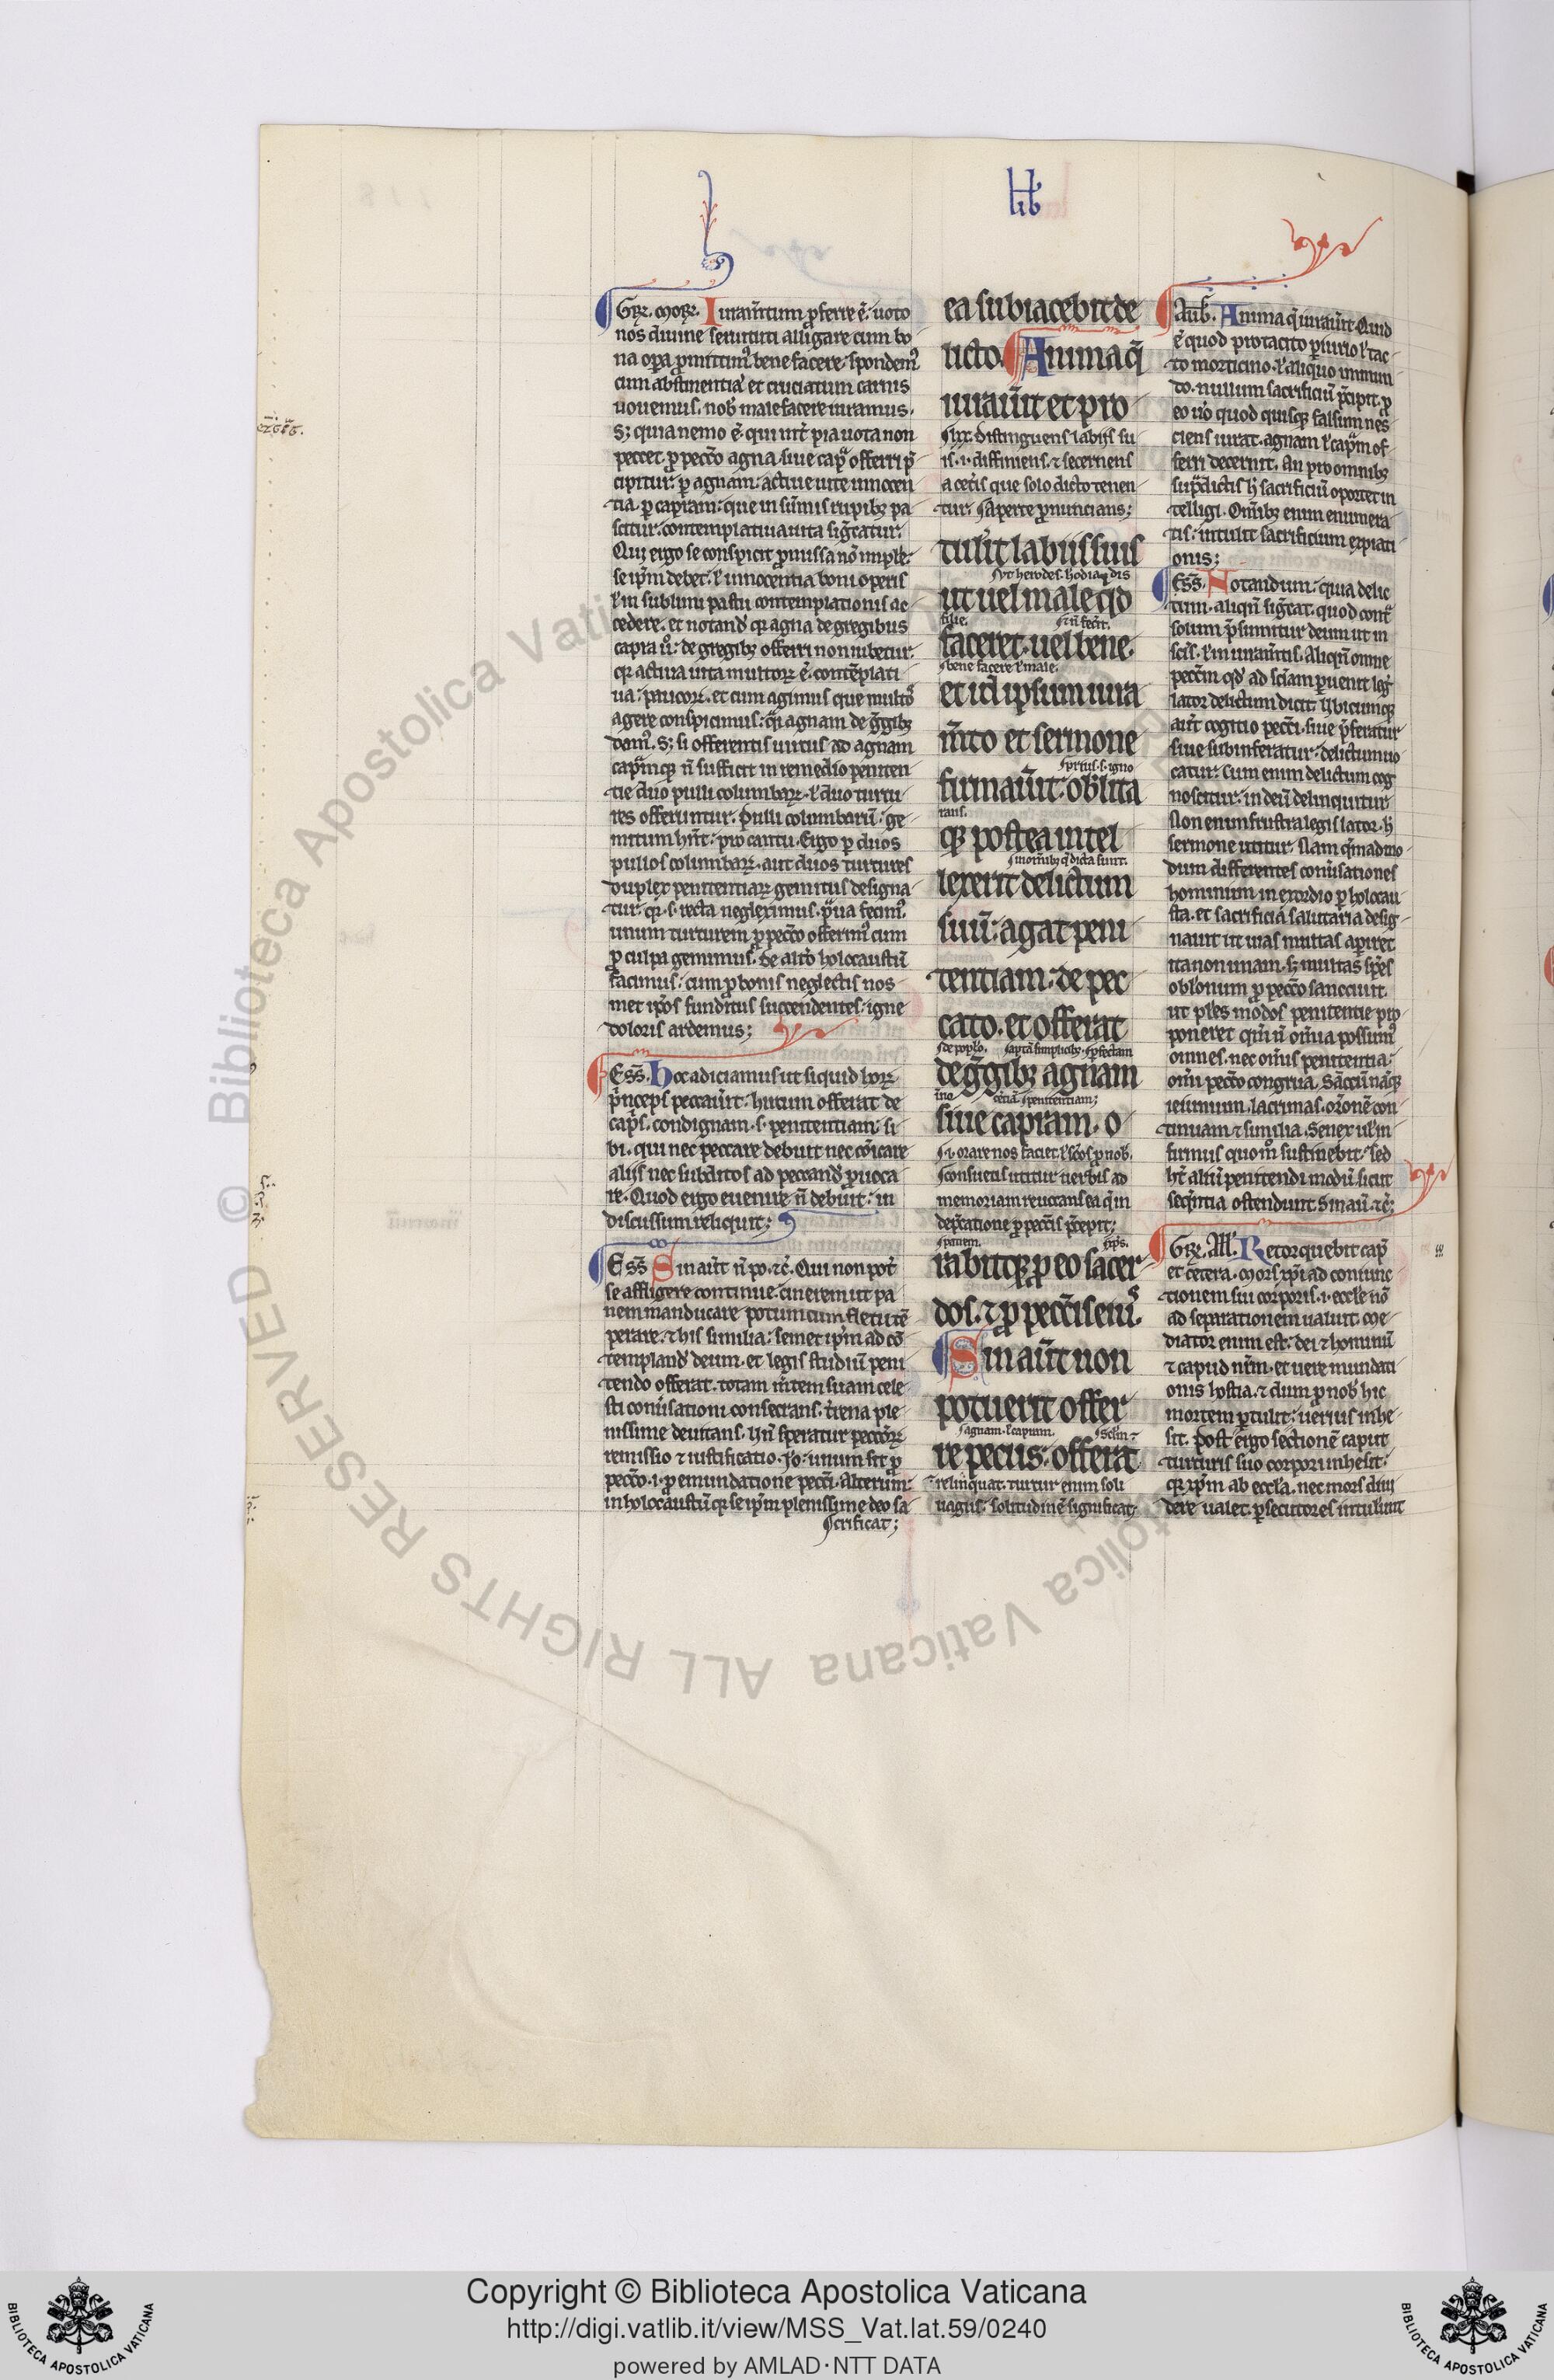 lib
Gr̄. Mor̄. Iuram̄tum p̱ferre ē. uoto
nos diuine seruituti alligare cum bo
na oꝑa ꝓmittim᷒ bene facere spondem᷒
cum abstinentiā et cruciatum carnis
uouemus. nob̄ male facere iuramus.
S; quia nemo ē. qui ut̄ pia uota non
peccet. ꝓ pecc̄o agna siue capᵃ offerri p̄
cipitur. ꝑ agnam: actiue uite innocen
tia. ꝑ capram: que in sūmis rupibꝫ pa
scitur. contemplatiua uita siḡcatur.
Qui ergo se conspicit ꝓmissa nō imple:
se ip̄m debet. ł innocentia boni operis
ł in sublimi pastu contemplationis ac
cedere. et notand̄ qꝛ agna de gregibus
capra u̇̊: de gregibꝫ offerri non iubetur.
qꝛ actiua uita multoꝝ ē. contēplati
ua: paucoꝝ. et cum agimus que multo᷒
agere conspicimus: qͣi agnam de g̃gibꝫ
dam᷒. S; si offerentis uirtus ad agnam
capᵃmqꝫ n̄ sufficit in remedio peniten
tie duo pulli columbaꝝ ł duo turtu
res offeruntur. Pulli columbarū: ge
mitum hn̄t: pro cantu. Ergo ꝑ duos
pullos columbaꝝ. aut duos turtures
duplex penitentiaꝝ gemitus designa
tur. qꝛ .s. recta neglexim᷒. pͣua fecim᷒.
unum turturem ꝓ pecc̄o offerim᷒ cum
ꝓ culpa gemimus. de alt̄o holocaustū
facimus: cum ꝓ bonis neglectis nos
met ip̄os funditus succendentes: igne
doloris ardemus;
Ess̄. Hoc adiciamus ut siquid hoꝝ
pͥnceps peccau̇it: hircum offerat de
capͥs. condignam .s. penitentiam: si
bi. qui nec peccare debuit nec cōicare
aliis nec subditos ad peccand̄ ꝓuoca
re. Quod ergo euenire n̄ debuit: in
discussum reliquit;
Ess̄. Sin aut̄ n̄ po. ⁊c̄. Qui non pot̄
se affligere continue. cinerem ut pa
nem manducare potum cum fletu tē
perare. ⁊ his similia: semet ip̄m ad cō
templand̄ deum. et legis studiū peni
tendo offerat. totam m̄tem suam cele
sti conu̇sationi consecrans. t̄rena ple
nissime deuitans. Hīc speratur peccoꝝ
remissio ⁊ iustificatio. Io: unum fit ꝓ
pecc̄o .i. ꝓ emundatione pecc̄i. Alterum:
in holocaustū qꝛ se ip̄m plenissime deo sa
crificat;
ea subiacebit de
licto. Anima q̄
iurau̇it et pro
.lxx. distinguens labiis su
is. i. diffiniens. ⁊ secernens
a cet̄is que solo dicto tenen
tur. Aperte ꝓnuncians;
tulit labiis suis
ut herodes. herodiadis
ut uel male qd̄
siue. n̄ fecit.
faceret. uel bene.
bene facere ł male.
et id ipsum iura
m̄to et sermone
prius .s. igno
firmau̇it. oblita
rans.
qꝫ postea intel
in omībꝫ q̄ dicta sunt.
lexerit delictum
suū: agat peni
tentiam. de pec
cato. et offerat
de g̃gibꝫ agnam
siue capram. o
.i. orare nos faciet ł sc̄os ꝓ nob̄.
consuetis utitur uerbis ad
memoriam reuocans ea q̄ in
dep̄catione ꝓ pecc̄is p̄cepit;
rabitqꝫ ꝓ eo sacer
dos. ⁊ ꝓ pecc̄is ei᷒.
Sin aut̄ non
potuerit offer
agnam. ł capram.
re pecus: offerat
relinquat. turtur enim soli
uagus: solitudinē significat;
Aub̄. Anima q̄ iurau̇it. Quid
ē quod pro tacito ꝑiurio ł tac
to morticino. ł aliquo immun
do. nullum sacrificiū p̄cipit. ꝓ
eo u̇o quod quisqꝫ falsum nes
ciens iurat. agnam ł capᵃm of
ferri decernit. An pro omnibꝫ
supᵃdictis h̄ sacrificiū oportet in
telligi. Om̄ibꝫ enim enumera
tis: intulit sacrificium expiati
onis;
Ess̄. Notandum: quia delic
tum. aliqn̄ siḡcat. quod contᵃ
solum p̄sumitur deum ut in
scīs. ł in iuram̄tis. Aliqn̄ omne
pecc̄m qd̄ ad sc̄iam ꝑuenit leg̃
lator delictum dicit. Ubicumqꝫ
aut̄ cognitio pecc̄i. siue p̄feratur
siue subinferatur: delictum uo
catur. Cum enim delictum cog
noscitur: in deū delinquitur
Non enim frustra legislator. h̄
sermone utitur. Nam q̄madmo
dum differentes conu̇sationes
hominum in exordio ꝑ holocau
sta. et sacrificia salutaria desig
nauit ut uias multas aperiret
ita non unam. s; multas sp̄es
obl̄onum ꝓ pecc̄o sanctiuit.
ut ples modos penitentie pro
poneret. qm̄ n̄ om̄ia possum᷒
omnes. nec om̄is penitentia:
om̄i pecc̄o congrua. Sacc̄ū nāqꝫ
ieiunium. lacrimas. or̄onē con
tinuam ⁊ similia. Senex uł in
firmus quom̊ sustinebit: sed
ht̄ aliū penitendi modū sicut
seq̄ntia ostendunt. Sin aut̄ ⁊c̄;
Gr̄. All̄. Retorquebit cap̄
et cetera. Mors xp̄i ad coniunc
tionem sui corporis .i. eccl̄e nō
ad separationem ualuit. Me
diator enim est: dei ⁊ hominū
⁊ capud n̄rm. et uere mundati
onis hostia. ⁊ dum ꝓ nob̄ hic
mortem ꝑtulit: uerius inhe
sit. Post ergo sectionē caput
turturis suo corpori inhesit:
qꝛ xp̄m ab eccl̄a. nec mors diui
dere ualet. ꝑsecutores intulerunt
Copyright © Biblioteca Apostolica Vaticana
http://digi.vatlib.it/view/MSS_Vat.lat.59/0240
powered by AMLAD·NTT DATA
BIBLIOTECA APOSTOLICA VATICANA
BIBLIOTECA APOSTOLICA VATICANA
© Biblioteca Apostolica Vaticana ALL RIGHTS RESERVED